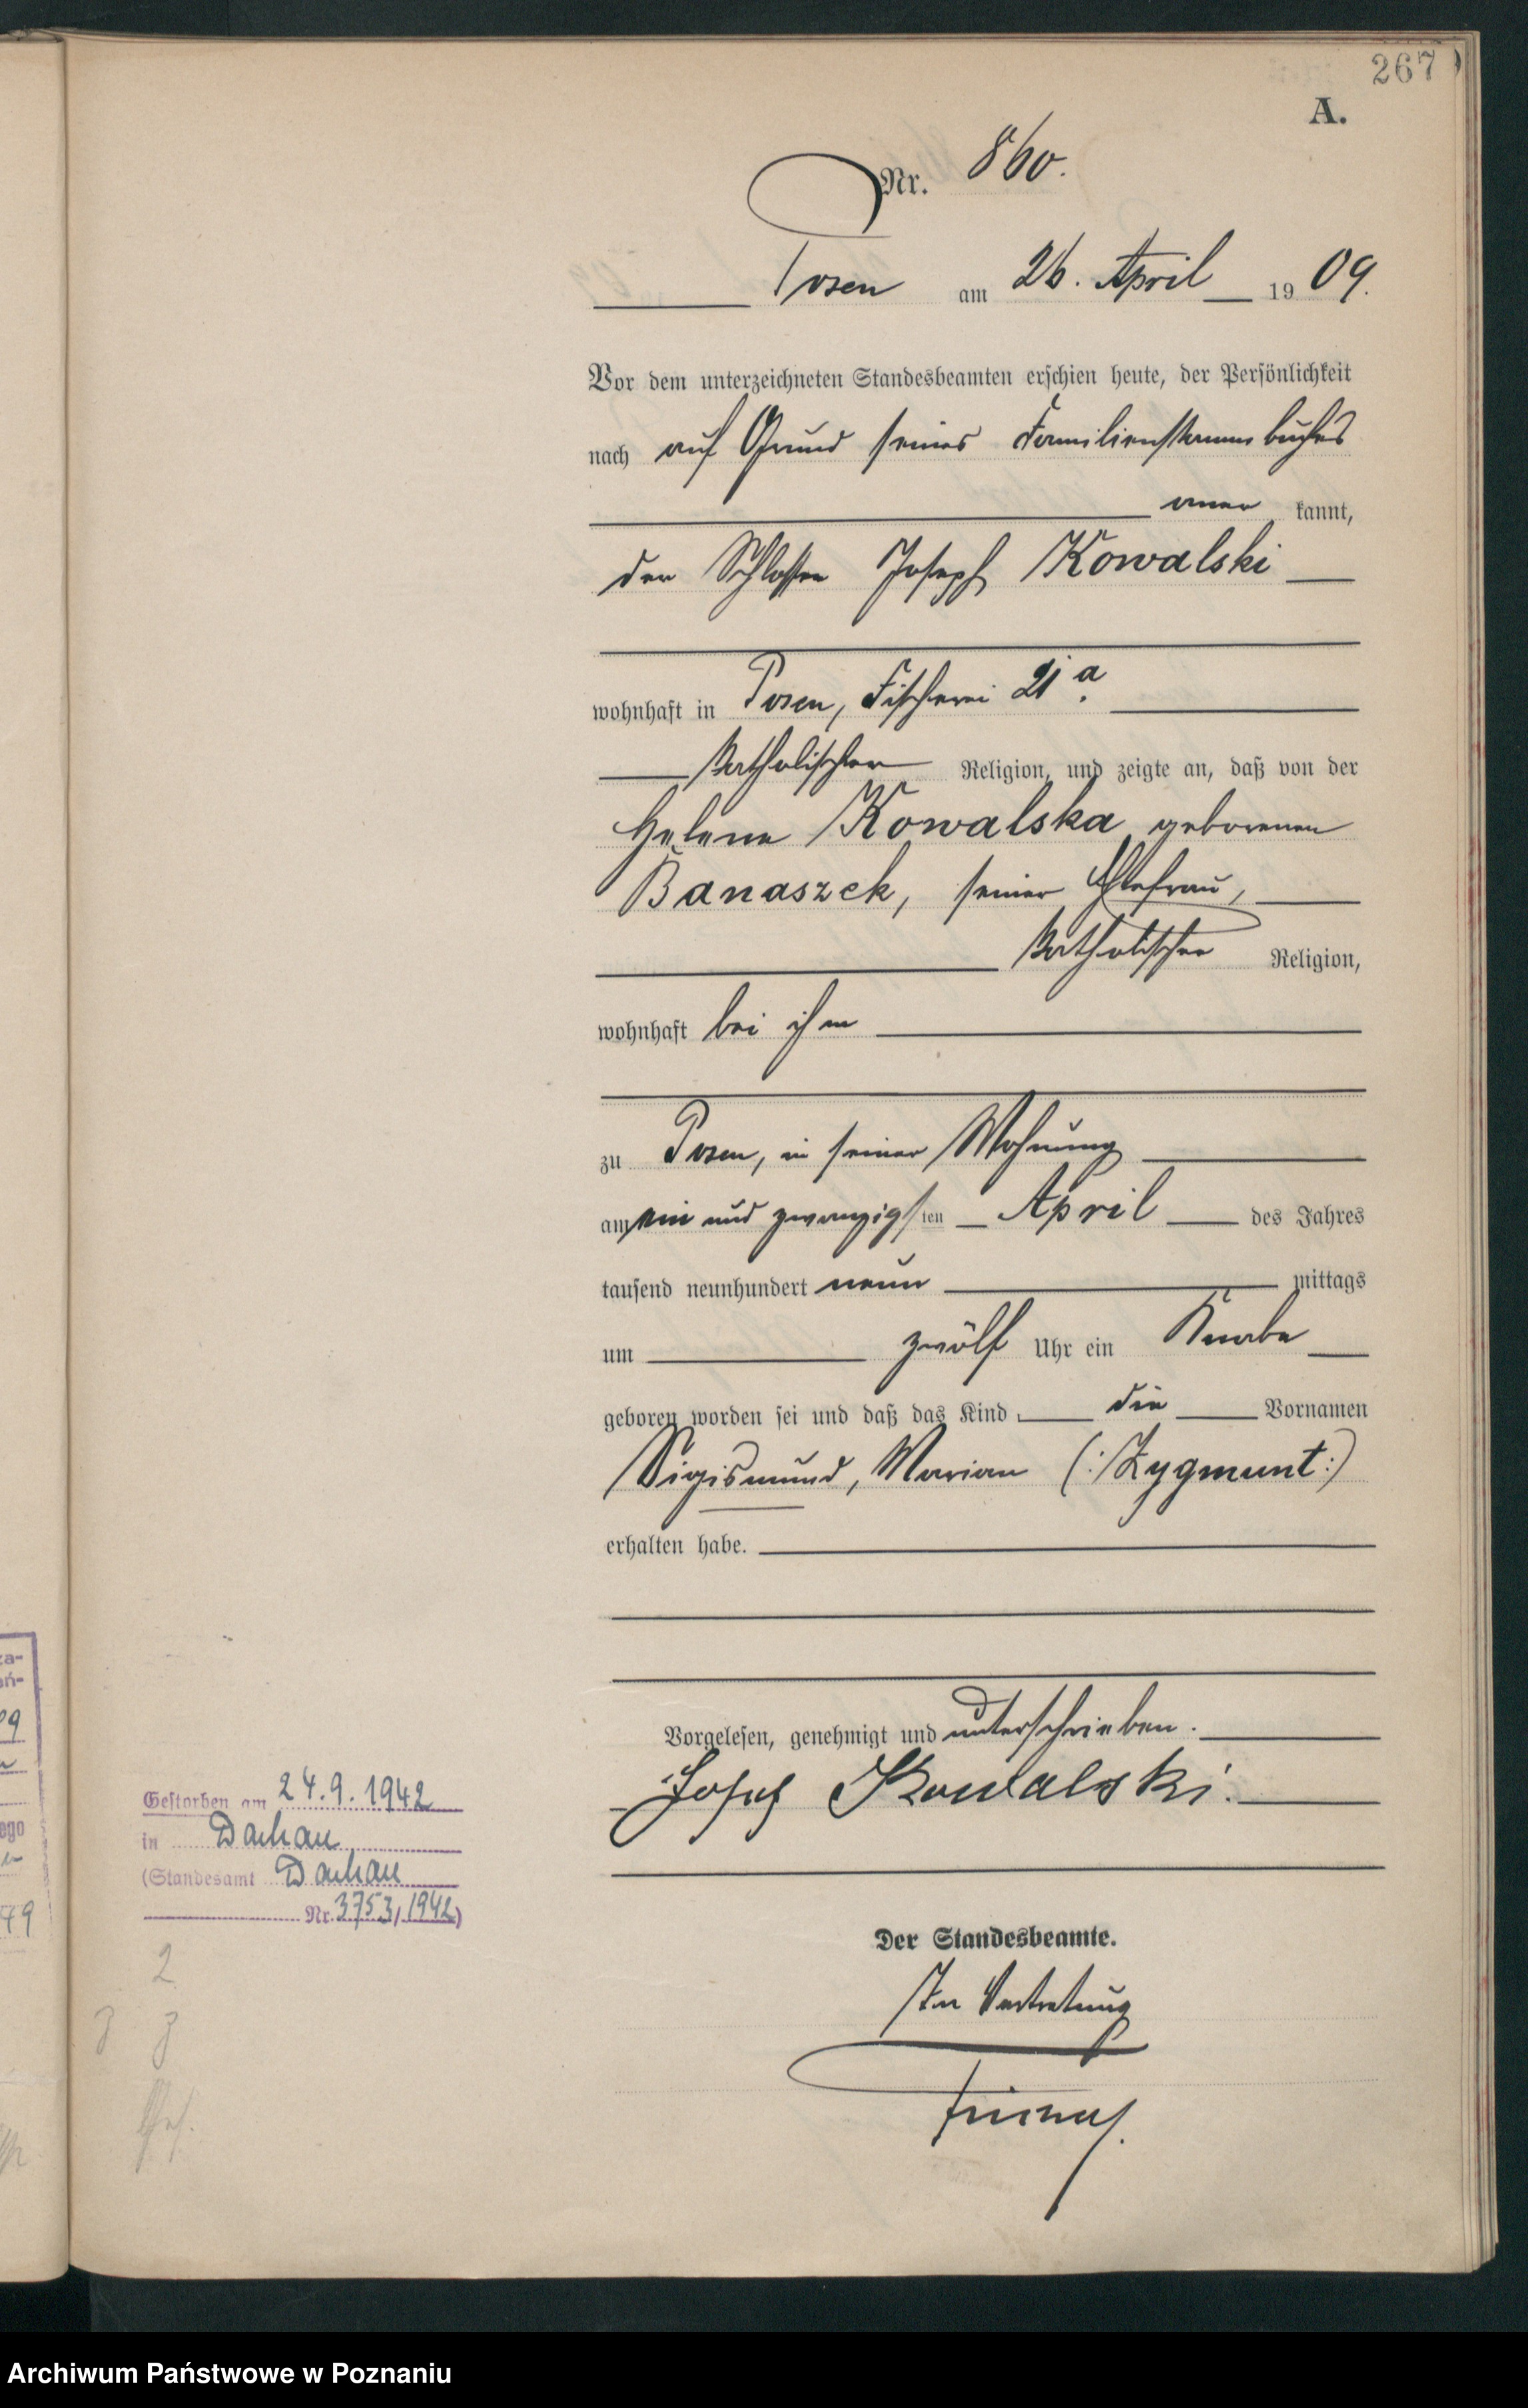 267
A.
Nr. 860.
Posen am 26. April 1909.
Vor dem unterzeichneten Standesbeamten erschien heute, der Persönlichkeit
nach auf Grund seines Familienstammbuches
aner kannt,
der Schlosser Joseph Kowalski
wohnhaft in Posen, Fischerei 21 a.
katholischer Religion, und zeigte an, daß von der
Helene Kowalska geborenen
Banaszek, seiner Ehefrau,
katholischer Religion,
wohnhaft bei ihm
zu Posen, in seiner Wohnung
am ein und zwanzigsten April des Jahres
tausend neunhundert neun mittags
um zwölf Uhr ein Knabe
geboren worden sei und daß das Kind die Vornamen
Sigismund, Marian (: Zygmunt :)
erhalten habe.
Vorgelesen, genehmigt und unterschrieben.
Josef Kowalski.
Der Standesbeamte.
In Vertretung
Gestorben am 24.9.1942
in Dachau
(Standesamt Dachau
Nr. 3753/1942)
2
za-
ań-
09
ego
49
Archiwum Państwowe w Poznaniu